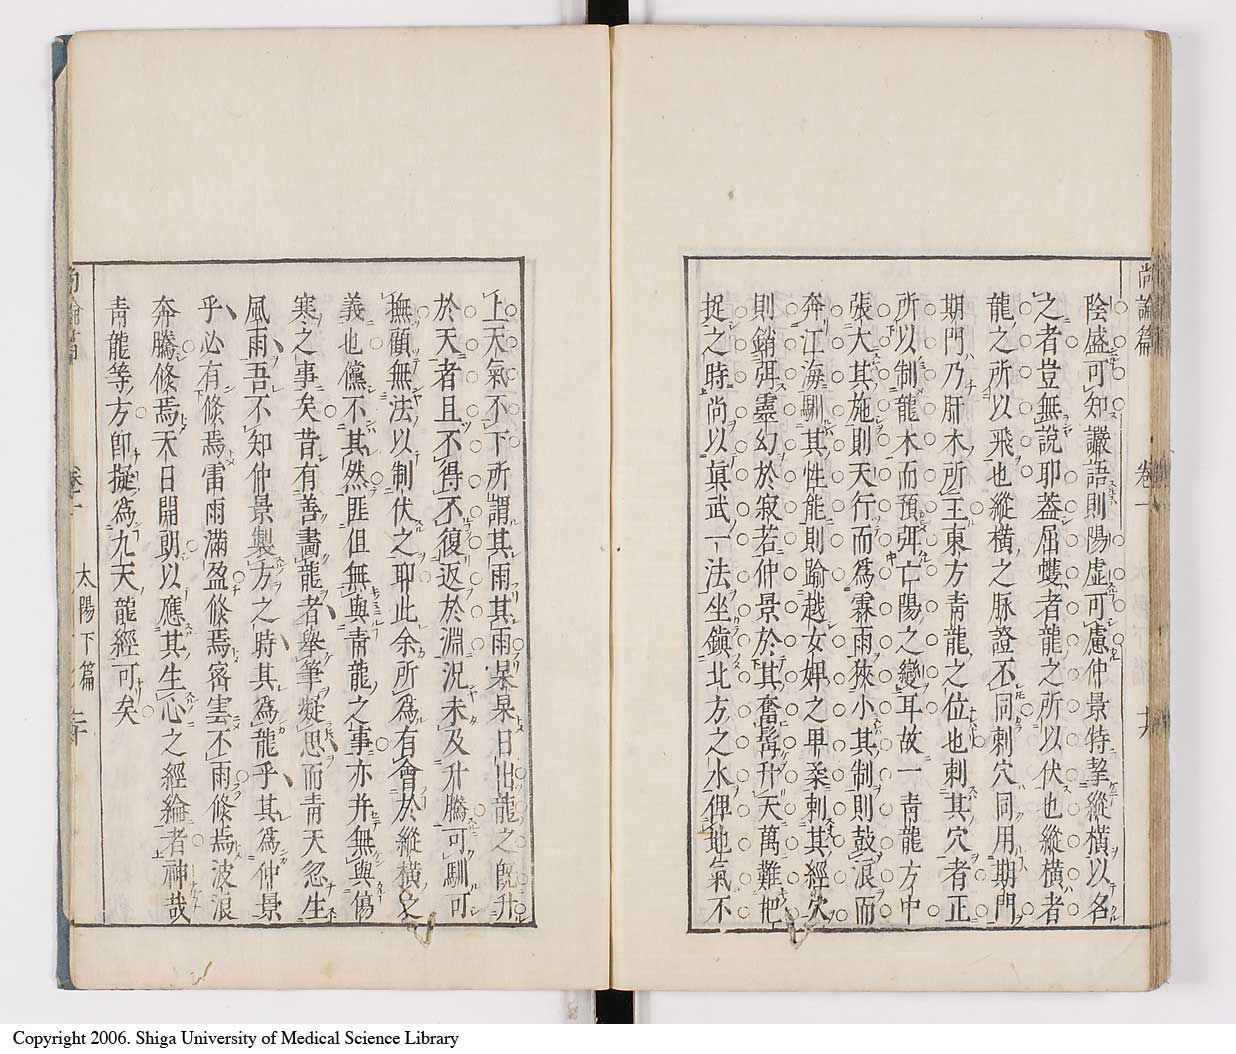 尚論篇
卷一
陰盛可知讝語則陽虛可慮仲景特挈縱橫以名
之者豈無說耶葢屈蠖者龍之所以伏也縱橫者
龍之所以飛也縱橫之脉證不同刺穴同用期門
期門乃肝木所主東方青龍之位也刺其穴者正
所以制龍木而預弭亡陽之變耳故一青龍方中
張大其施則天行而爲霖雨狹小其制則鼓浪而
奔江海馴其性能則踰越女婢之甲柔刺其經穴
則銷弭靈幻於寂若仲景於其奮髯升天萬難把
捉之時尚以眞武一法坐鎭北方之水俾地氣不
上天氣不下所謂其雨其雨杲杲日出龍之旣升
於天者且不得不復返於淵況未及升騰可馴可
撫顧無法以制伏之耶此余所爲有會於縱橫之
義也儻不其然匪但無與青龍之事亦幷無與傷
寒之事矣昔有善畵龍者舉筆凝思而青天忽生
風雨吾不知仲景製方之時其爲龍乎其爲仲景
乎必有倏焉雷雨滿盈倏焉密雲不雨倏焉波浪
奔騰倏焉天日開朗以應其生心之經綸者神哉
青龍等方卽擬爲九天龍經可矣
太陽下篇
Copyright 2006. Shiga University of Medical Science Library